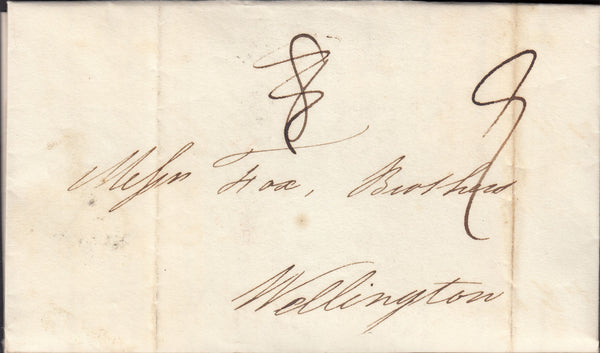 8 9
Messrs Fox, Brothers
Wellington